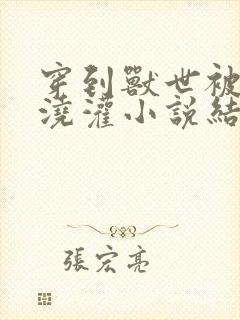 穿到獸世被
澆灌小説結
張宏亮